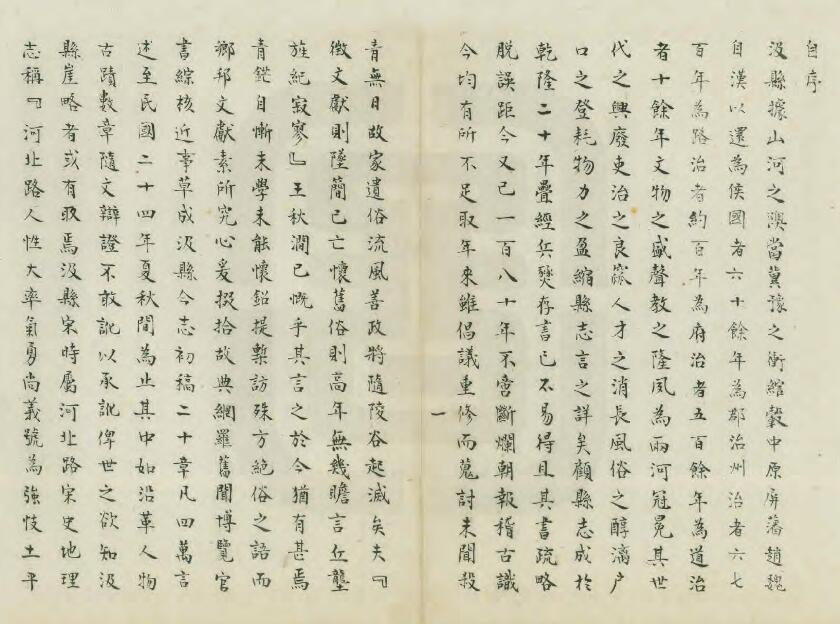 自序
汲縣據山河之隩當冀豫之衝綰轂中原屏藩趙魏
自漢以還為侯國者六十餘年為郡治州治者六七
百年為路治者約百年為府治者五百餘年為道治
者十餘年文物之盛聲教之隆夙為兩河冠冕其世
代之興廢吏治之良窳人才之消長風俗之醇漓户
口之登耗物力之盈縮縣志言之詳矣顧縣志成於
乾隆二十年疊經兵燹存書已不易得且其書疏略
脫誤距今又已一百八十年不啻斷爛朝報稽古識
今均有所不足取年來雖倡議重修而蒐討未聞殺
一
青無日故家遺俗流風善政將隨陵谷起滅矣夫『
徵文獻則墜簡已亡懷舊俗則高年無幾瞻言丘壟
旌紀寂寥』王秋澗已慨乎其言之於今猶有甚焉
青鋩自慚末學未能懷鉛提槧訪殊方絕俗之語而
鄉邦文獻素所究心爰掇拾故典網羅舊聞博覽官
書綜核近事草成汲縣今志初稿二十章凡四萬言
述至民國二十四年夏秋間為止其中如沿革人物
古蹟數章隨文辯證不敢訛以承訛俾世之欲知汲
縣崖略者或有取焉汲縣宋時屬河北路宋史地理
志稱『河北路人性大率氣勇尚義號為強忮土平